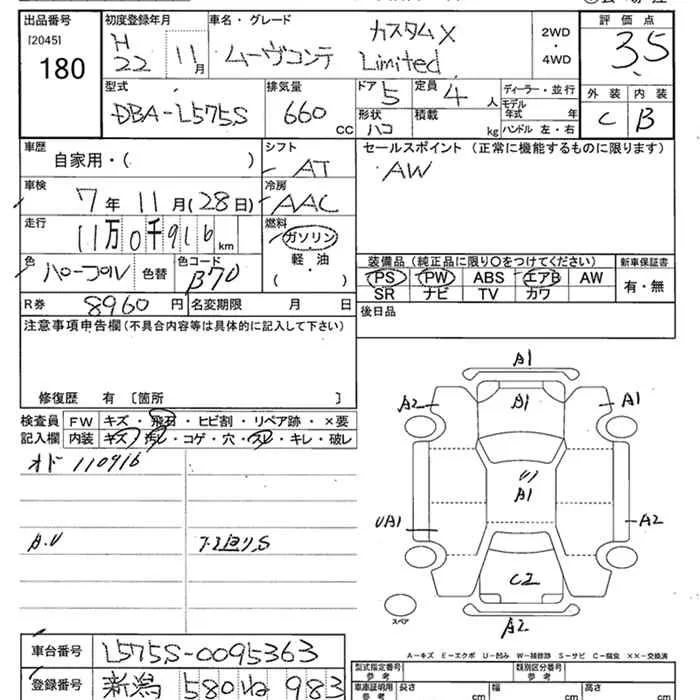 出品番号 初度登録年月 車名・グレード 評価点
[2045] H カスタムX 2WD
180 22 11月 ムーヴコンテ Limited ・ 4WD 3.5
型式 排気量 ドア 5 定員 4人 ディーラー・並行 外装 内装
DBA-L575S 660cc 形状 ハコ 積載 kg モデル年式 年 C B
ハンドル 左・右
車歴 自家用・( ) シフト AT セールスポイント(正常に機能するものに限ります)
車検 7年11月(28日) 冷房 AAC AW
走行 11万0千916km 燃料 ガソリン
軽・油
( )
色 パープル 色替 色コード B70
装備品(純正品に限り○をつけてください) 新車保証書
PS PW ABS エアB AW 有・無
SR ナビ TV カワ
R券 8960円 名変期限 月 日 後日品
注意事項申告欄(不具合内容等は具体的に記入して下さい)
修復歴 有 〔箇所 〕
検査員 FW キズ・飛石・ヒビ割・リペア跡・×要
記入欄 内装 キズ・汚レ・コゲ・穴・スレ・キレ・破レ
オド 110916
A.U
A1
A2 A1 A1
U1
A1
UA1 A2
C2
スペア
A2
A-キズ E-エクボ U-凹み W-補修跡 S-サビ C-腐食 ××-交換済
車台番号 L575S-0095363
型式指定番号 参考 類別区分番号 参考
登録番号 新潟 580 ね 983
車庫証明用 参考 長さ cm 幅 cm 高さ cm